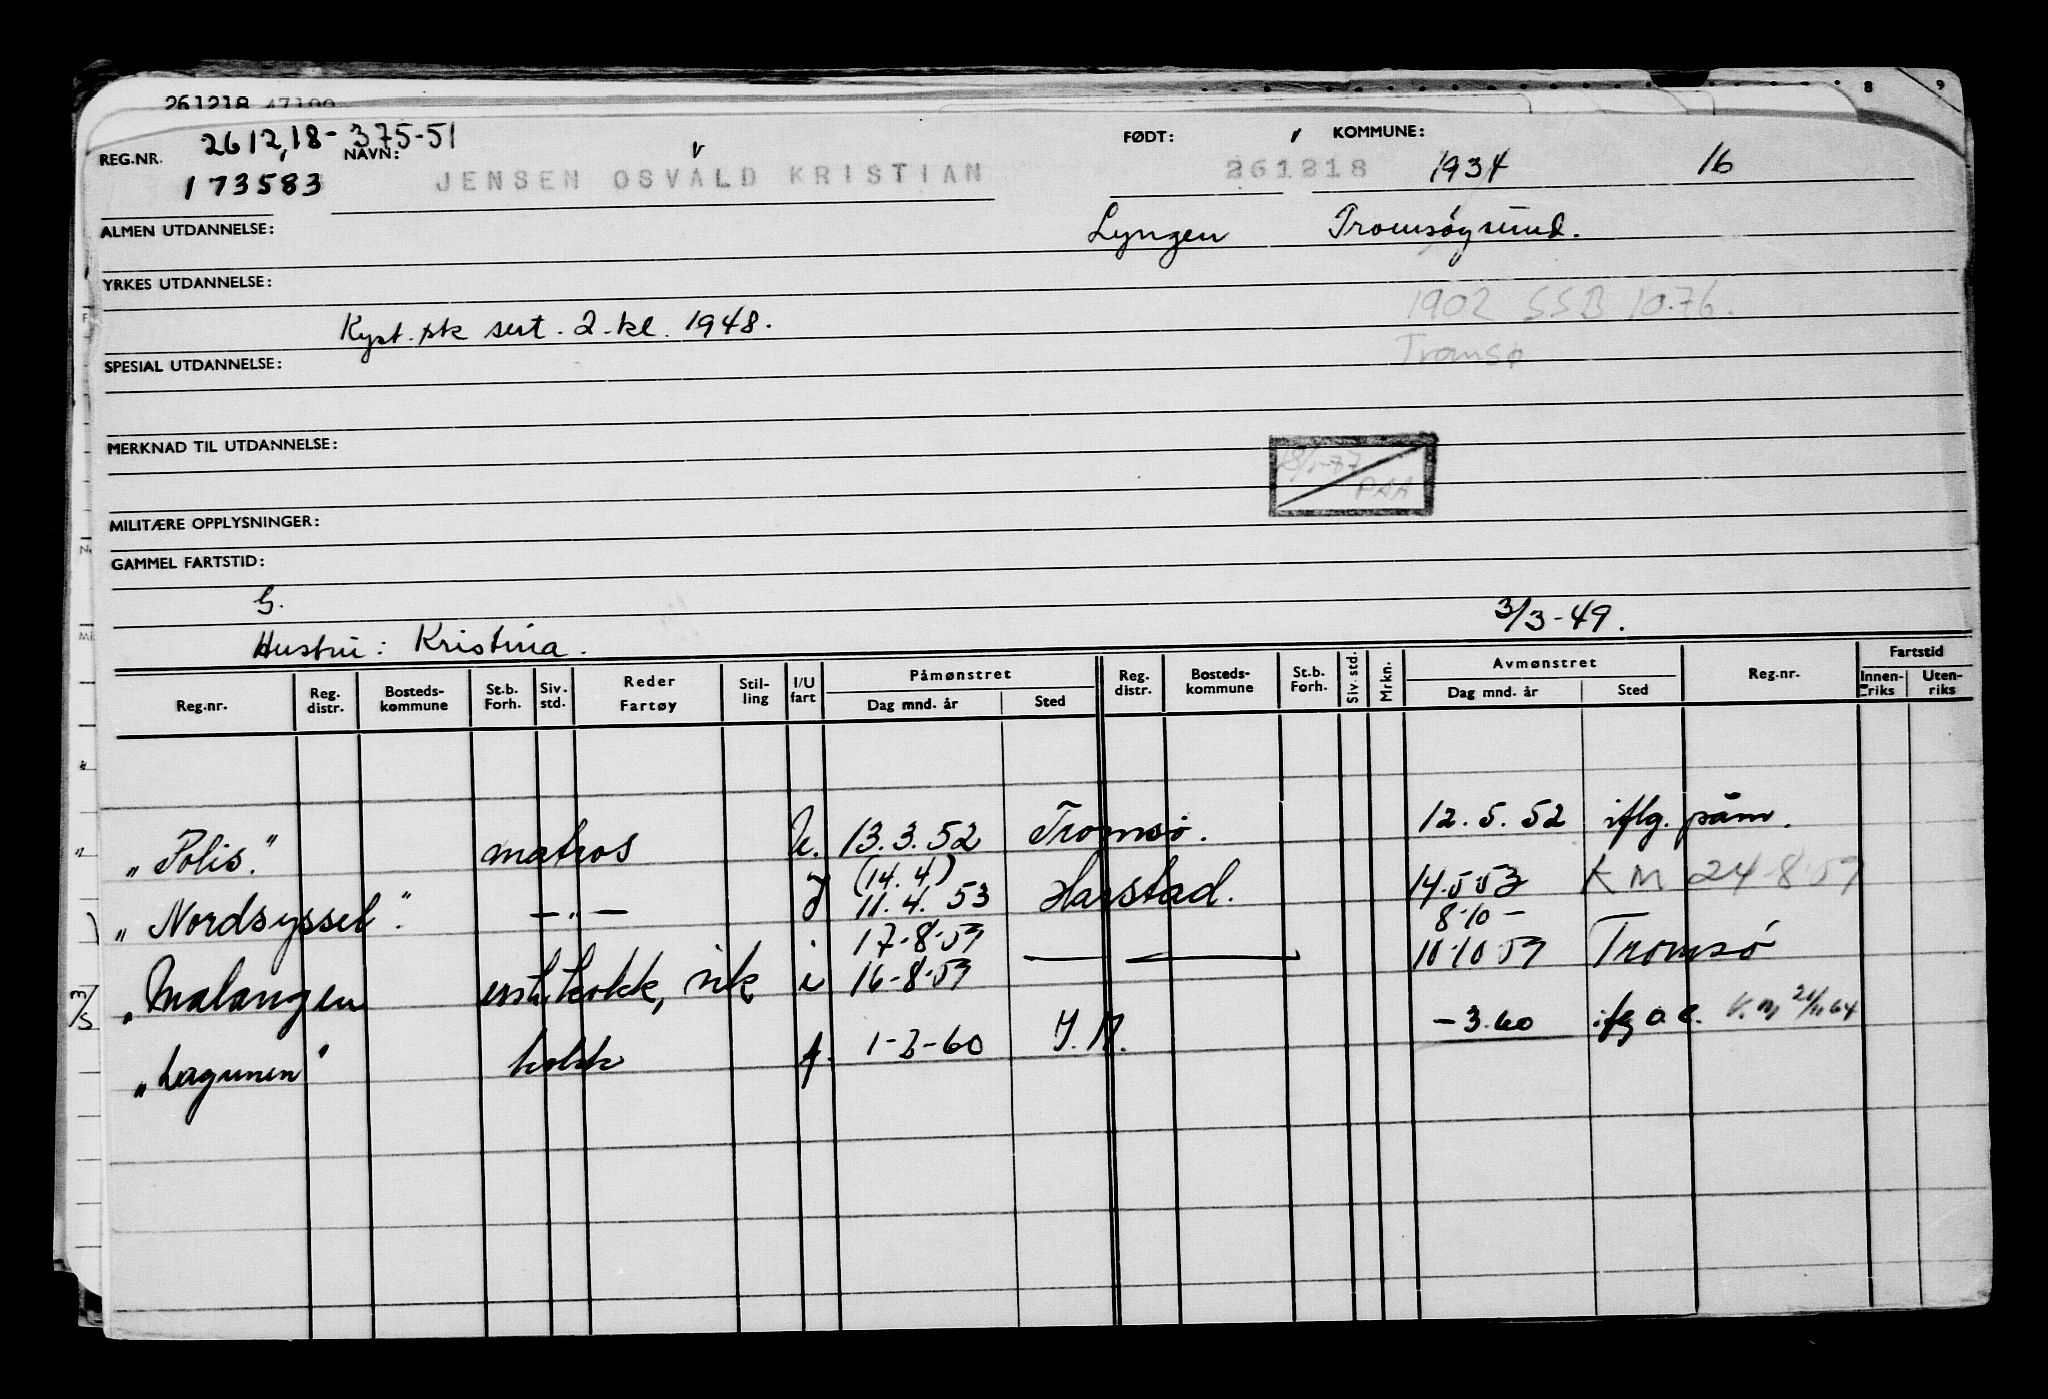 8 9
261218 47100
REG.NR. 261218-375-51 NAVN: FØDT: KOMMUNE:
173583 JENSEN OSVALD KRISTIAN 261218 1934 16
ALMEN UTDANNELSE: Lyngen Tromsøysund.
YRKES UTDANNELSE:
1902 SSB 10.76.
Kyst. sk sert. 2. kl. 1948.
Tromsø
SPESIAL UTDANNELSE:
MERKNAD TIL UTDANNELSE:
PAA
MILITÆRE OPPLYSNINGER:
GAMMEL FARTSTID:
G. 3/3-49.
Hustru: Kristina.
Reg.nr. Reg. distr. Bosteds-kommune St.b. Forh. Siv. std. Reder Fartøy Stil-ling I/U fart Påmønstret Dag mnd. år Sted Reg. distr. Bosteds-kommune St.b. Forh. Siv. std. Mrkn. Avmønstret Dag mnd. år Sted Reg.nr. Fartstid Innen-riks Uten-riks
"Polis." matros U. 13.3.52 Tromsø. 12.5.52 iflg. påm.
(14.4)
"Nordsyssel". — " — 11.4.53 Harstad. 14.5.53 KM 24-8-59
17-8-59 8-10-
"Malangen kokk, i 16-8-59 10-10-59 Tromsø
3/5
"Lagunen" kokk 1-2-60 -3.60 K.M